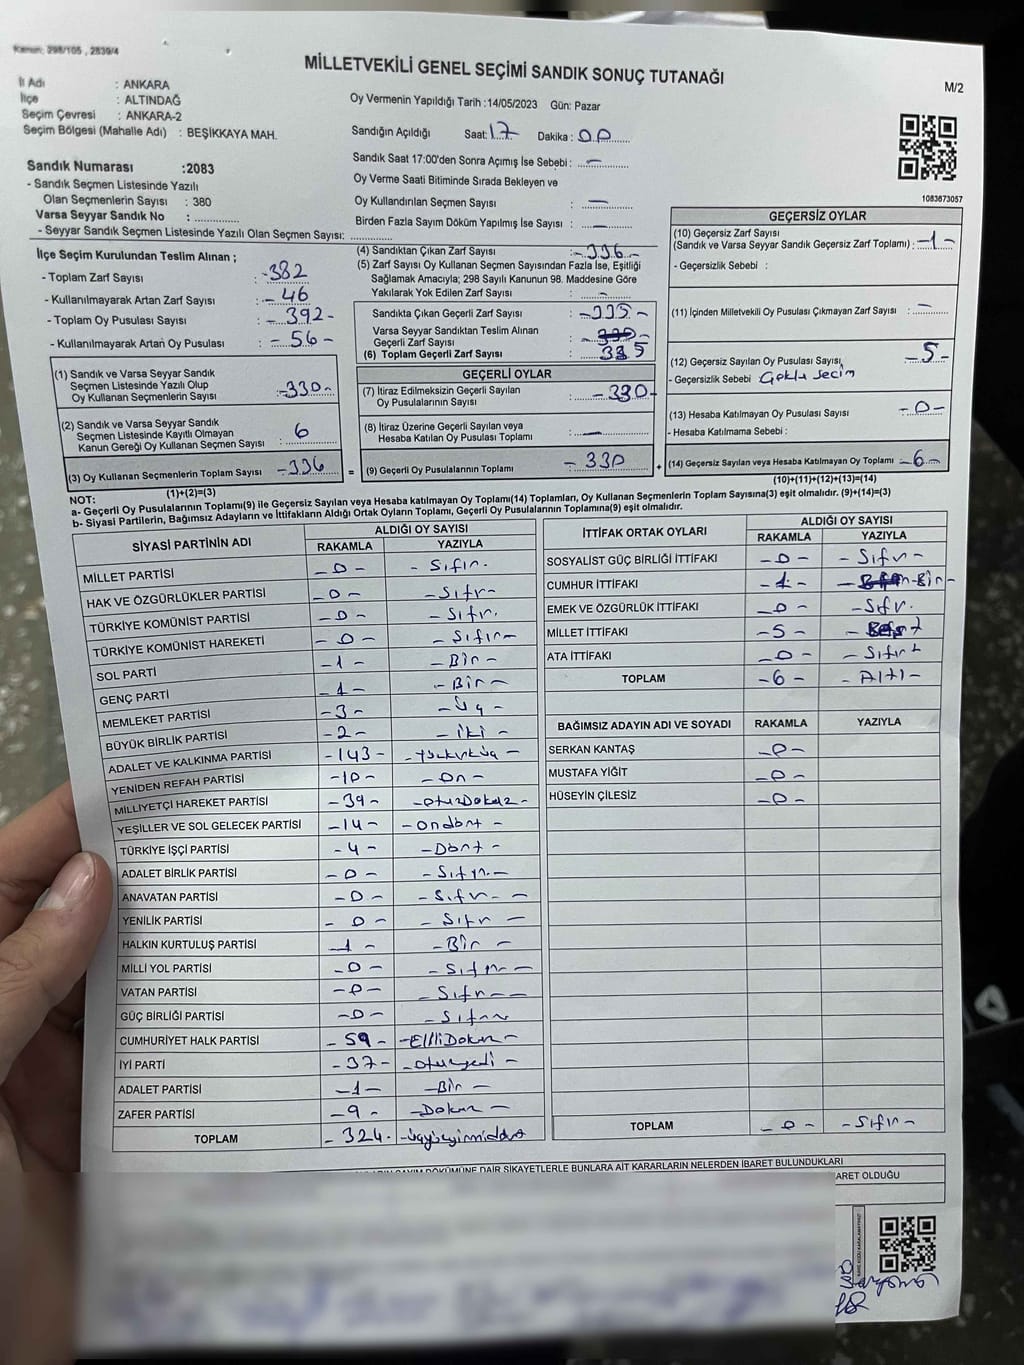 Kanun: 298/105 , 2839/4
MİLLETVEKİLİ GENEL SEÇİMİ SANDIK SONUÇ TUTANAĞI
M/2
İl Adı : ANKARA
İlçe : ALTINDAĞ
Seçim Çevresi : ANKARA-2
Seçim Bölgesi (Mahalle Adı) : BEŞİKKAYA MAH.
Oy Vermenin Yapıldığı Tarih :14/05/2023 Gün: Pazar
Sandığın Açıldığı Saat: 17 Dakika: 00
Sandık Saat 17:00'den Sonra Açımış İse Sebebi : —
Oy Verme Saati Bitiminde Sırada Bekleyen ve
Oy Kullandırılan Seçmen Sayısı : —
Birden Fazla Sayım Döküm Yapılmış İse Sayısı : —
1083673057
Sandık Numarası :2083
- Sandık Seçmen Listesinde Yazılı
Olan Seçmenlerin Sayısı : 380
Varsa Seyyar Sandık No :
- Seyyar Sandık Seçmen Listesinde Yazılı Olan Seçmen Sayısı:
İlçe Seçim Kurulundan Teslim Alınan ;
- Toplam Zarf Sayısı : -382
- Kullanılmayarak Artan Zarf Sayısı : - 46
- Toplam Oy Pusulası Sayısı : - 392-
- Kullanılmayarak Artan Oy Pusulası : - 56 -
(1) Sandık ve Varsa Seyyar Sandık
Seçmen Listesinde Yazılı Olup
Oy Kullanan Seçmenlerin Sayısı : -330-
(2) Sandık ve Varsa Seyyar Sandık
Seçmen Listesinde Kayıtlı Olmayan
Kanun Gereği Oy Kullanan Seçmen Sayısı : 6
(3) Oy Kullanan Seçmenlerin Toplam Sayısı -336
(1)+(2)=(3)
(4) Sandıktan Çıkan Zarf Sayısı : -336-
(5) Zarf Sayısı Oy Kullanan Seçmen Sayısından Fazla İse, Eşitliği
Sağlamak Amacıyla; 298 Sayılı Kanunun 98. Maddesine Göre
Yakılarak Yok Edilen Zarf Sayısı : -
Sandıkta Çıkan Geçerli Zarf Sayısı : -335-
Varsa Seyyar Sandıktan Teslim Alınan
Geçerli Zarf Sayısı :
(6) Toplam Geçerli Zarf Sayısı : 335
GEÇERLİ OYLAR
(7) İtiraz Edilmeksizin Geçerli Sayılan
Oy Pusulalarının Sayısı : -330-
(8) İtiraz Üzerine Geçerli Sayılan veya
Hesaba Katılan Oy Pusulası Toplamı : —
= (9) Geçerli Oy Pusulalarının Toplamı - 330
GEÇERSİZ OYLAR
(10) Geçersiz Zarf Sayısı
(Sandık ve Varsa Seyyar Sandık Geçersiz Zarf Toplamı) : -1-
- Geçersizlik Sebebi :
(11) İçinden Milletvekili Oy Pusulası Çıkmayan Zarf Sayısı : -
(12) Geçersiz Sayılan Oy Pusulası Sayısı -5-
- Geçersizlik Sebebi Çoklu Seçim
(13) Hesaba Katılmayan Oy Pusulası Sayısı -0-
- Hesaba Katılmama Sebebi :
+ (14) Geçersiz Sayılan veya Hesaba Katılmayan Oy Toplamı -6-
(10)+(11)+(12)+(13)=(14)
NOT:
a- Geçerli Oy Pusulalarının Toplamı(9) ile Geçersiz Sayılan veya Hesaba katılmayan Oy Toplamı(14) Toplamları, Oy Kullanan Seçmenlerin Toplam Sayısına(3) eşit olmalıdır. (9)+(14)=(3)
b- Siyasi Partilerin, Bağımsız Adayların ve İttifakların Aldığı Ortak Oyların Toplamı, Geçerli Oy Pusulalarının Toplamına(9) eşit olmalıdır.
SİYASİ PARTİNİN ADI ALDIĞI OY SAYISI
RAKAMLA YAZIYLA
MİLLET PARTİSİ -0- - Sıfır.
HAK VE ÖZGÜRLÜKLER PARTİSİ -0- - Sıfır-
TÜRKİYE KOMÜNİST PARTİSİ -0- - Sıfır.
TÜRKİYE KOMÜNİST HAREKETİ -0- - Sıfır-
SOL PARTİ -1- - Bir -
GENÇ PARTİ -1- - Bir -
MEMLEKET PARTİSİ -3- - Üç -
BÜYÜK BİRLİK PARTİSİ -2- - iki -
ADALET VE KALKINMA PARTİSİ -143- - Yüzkırküç -
YENİDEN REFAH PARTİSİ -10- - On -
MİLLİYETÇİ HAREKET PARTİSİ -39- -OtuzDokuz-
YEŞİLLER VE SOL GELECEK PARTİSİ -14- - Ondört -
TÜRKİYE İŞÇİ PARTİSİ -4- -Dört -
ADALET BİRLİK PARTİSİ -0- - Sıfır-
ANAVATAN PARTİSİ -0- - Sıfır-
YENİLİK PARTİSİ - 0- - Sıfır -
HALKIN KURTULUŞ PARTİSİ -1- - Bir -
MİLLİ YOL PARTİSİ -0- - Sıfır-
VATAN PARTİSİ -0- - Sıfır-
GÜÇ BİRLİĞİ PARTİSİ -0- - Sıfır
CUMHURİYET HALK PARTİSİ - 59 - -ElliDokuz-
İYİ PARTİ -37- -Otuzyedi -
ADALET PARTİSİ -1- -Bir -
ZAFER PARTİSİ -9- -Dokuz -
TOPLAM - 324- -üçyüzyirmidört
İTTİFAK ORTAK OYLARI ALDIĞI OY SAYISI
RAKAMLA YAZIYLA
SOSYALİST GÜÇ BİRLİĞİ İTTİFAKI -0- - Sıfır -
CUMHUR İTTİFAKI -1- -Bir-
EMEK VE ÖZGÜRLÜK İTTİFAKI -0- -Sıfır.
MİLLET İTTİFAKI -5-
ATA İTTİFAKI -0- - Sıfır
TOPLAM -6- - Altı-
BAĞIMSIZ ADAYIN ADI VE SOYADI RAKAMLA YAZIYLA
SERKAN KANTAŞ -0-
MUSTAFA YİĞİT -0-
HÜSEYİN ÇİLESİZ -0-
TOPLAM -0- -Sıfır-
DÖKÜMÜNE DAİR ŞİKAYETLERLE BUNLARA AİT KARARLARIN NELERDEN İBARET BULUNDUKLARI
ARET OLDUĞU